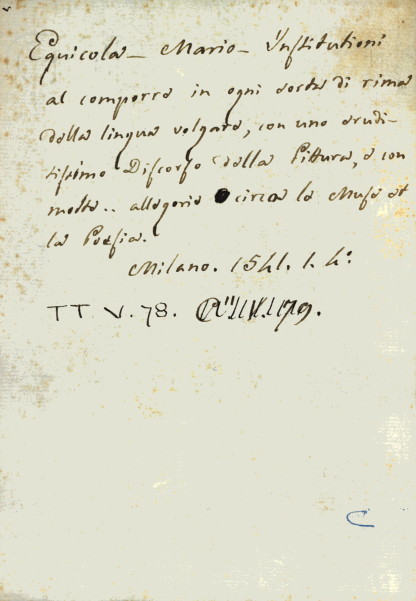 Equicola - Mario - Institutioni
al comporre in ogni sorta di rima
della lingua volgare, con uno erudi-
tissimo Discorso della Pittura, e con
molte.. allegorie circa le Muse et
la Poesia.
Milano. 1541. 1. 4°.
TT V. 78.
C